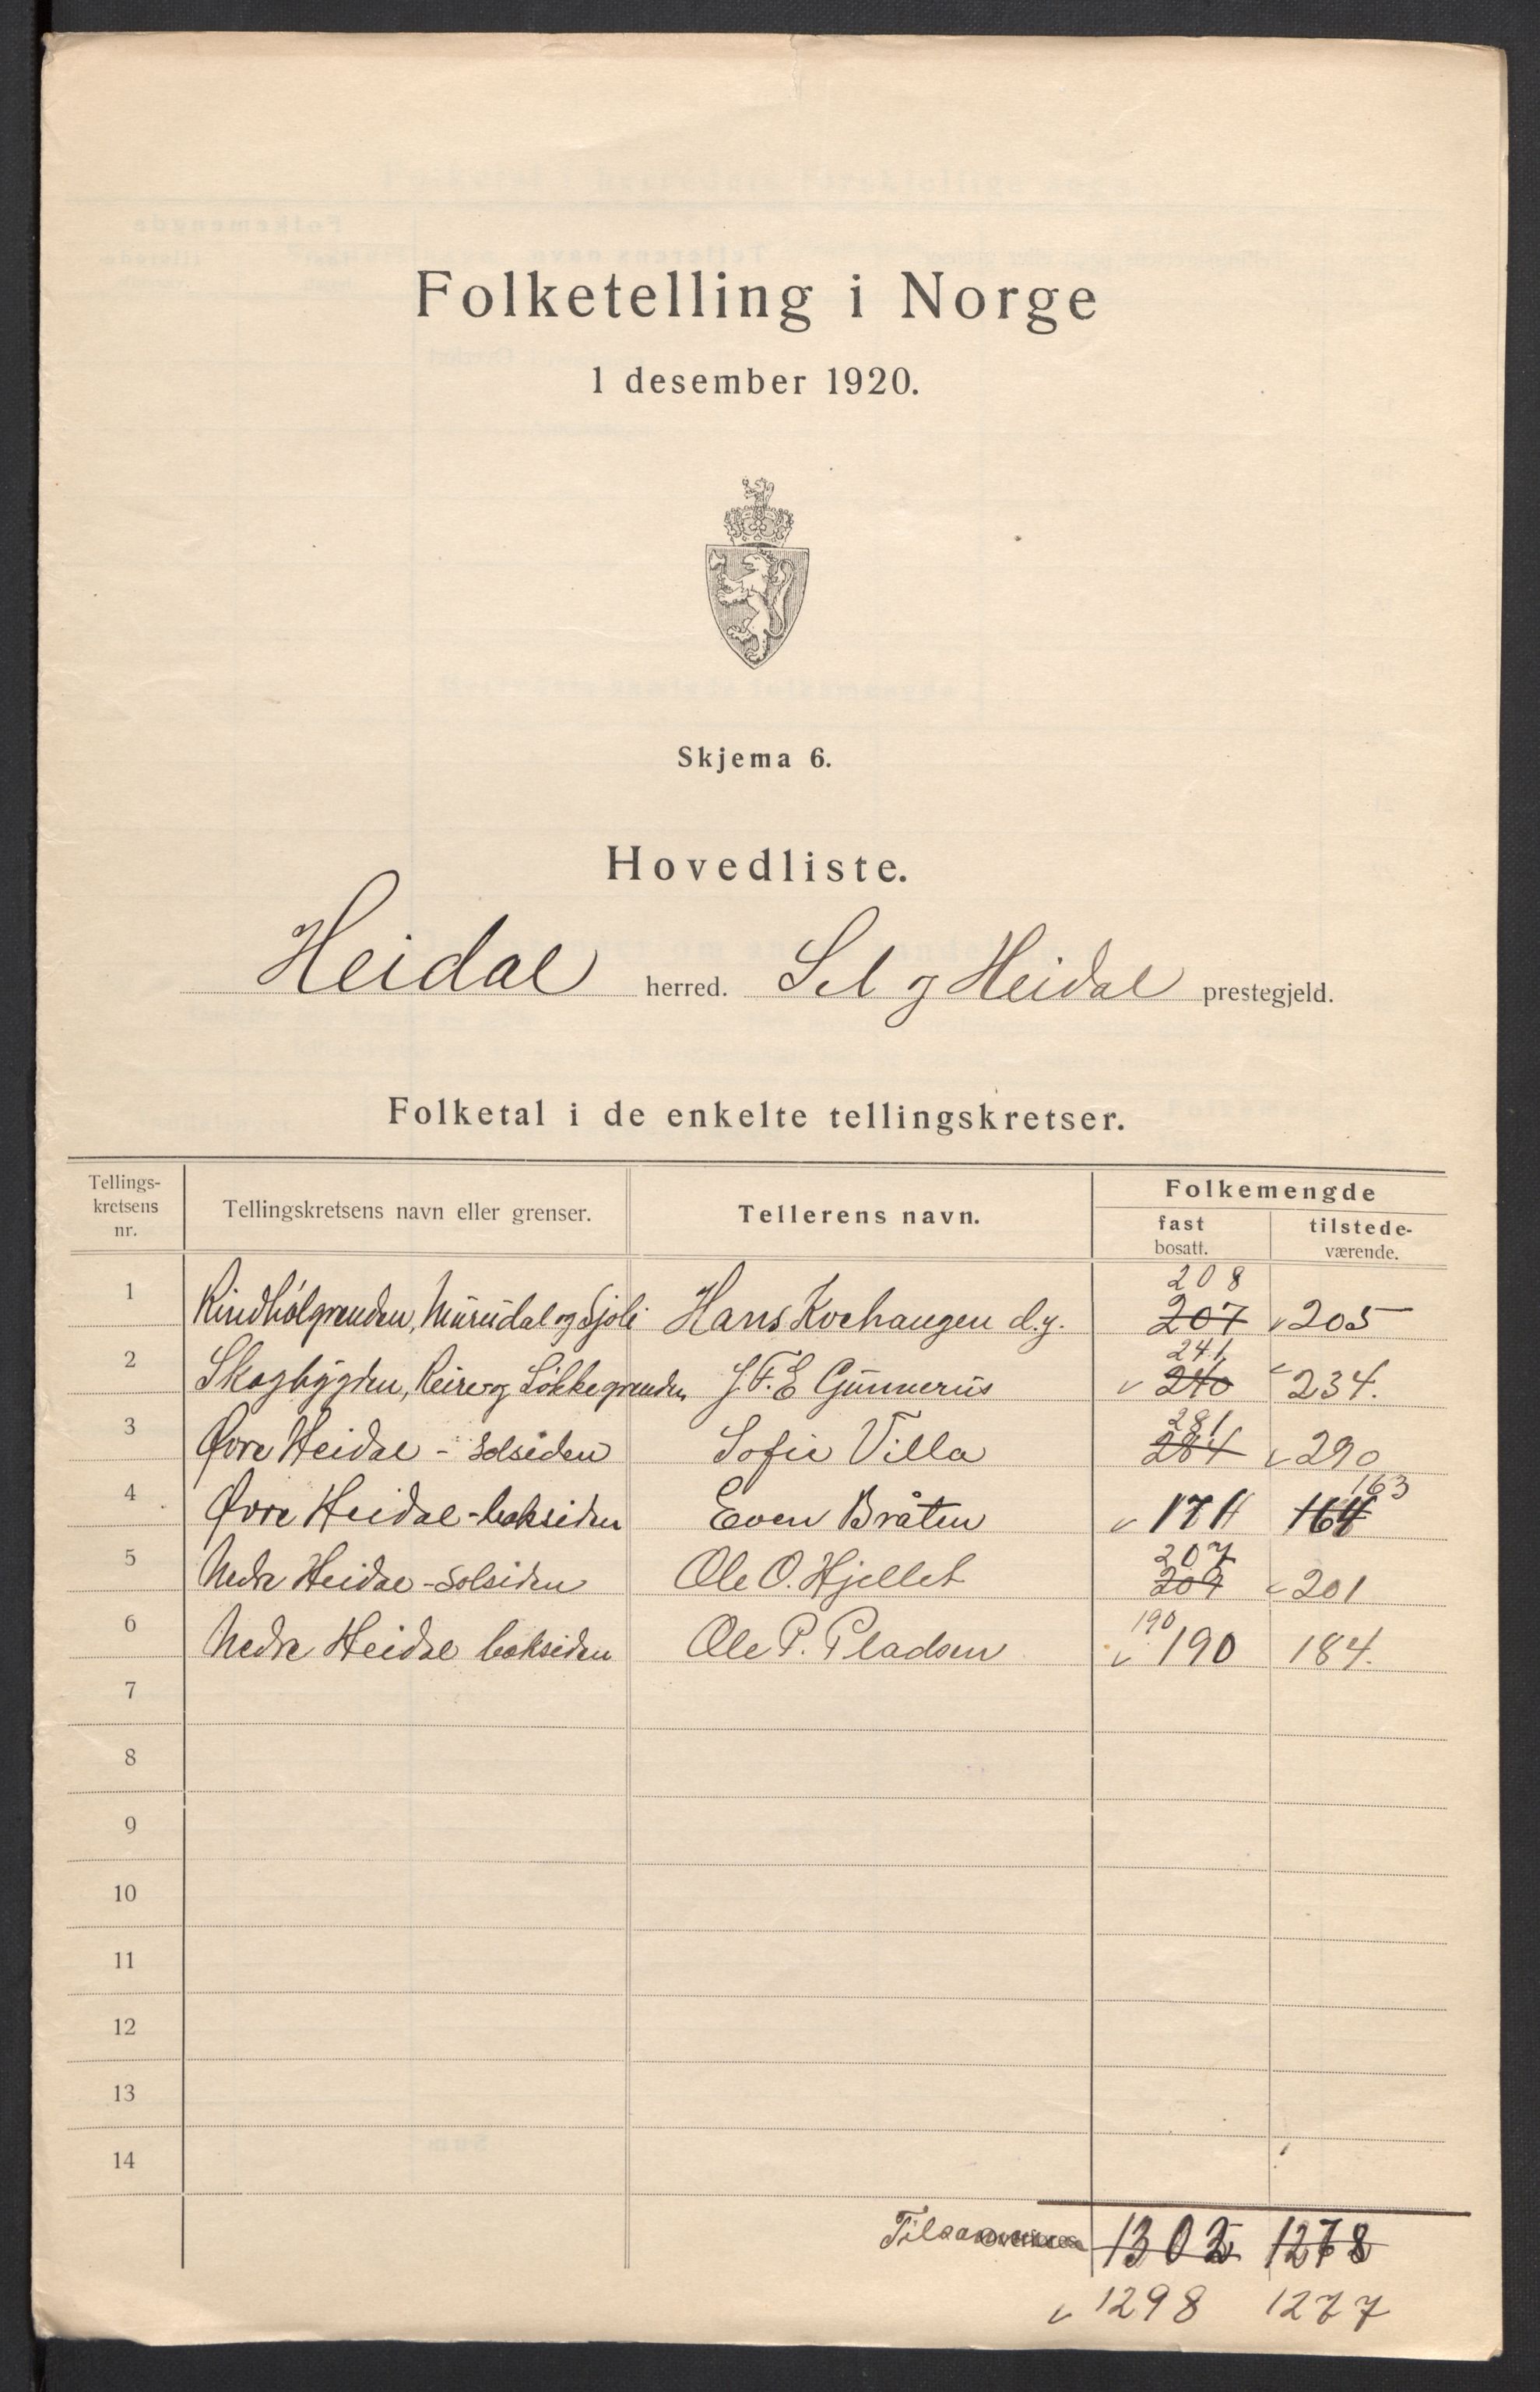 Folketelling i Norge
1 desember 1920.
Skjema 6.
Hovedliste.
Heidal herred. Sel og Heidal prestegjeld.
Folketal i de enkelte tellingskretser.
Tellings-kretsens nr. Tellingskretsens navn eller grenser. Tellerens navn. Folkemengde
fast bosatt. tilstede-værende.
208
1 Rindhølgrenden, Murudal og Sjoli Hans Kvehaugen d.y. 207 205
241
2 Skogbygden, Reire og Løkkegrenden J. F. E Gunnerus 240 234.
281
3 Øvre Heidal - solsiden Sofie Villa 284 290
163
4 Øvre Heidal - baksiden Even Bråten 171 164
207
5 Nedre Heidal - solsiden Ole O. Hjellet 209 201
190
6 Nedre Heidal baksiden Ole P. Pladsen 190 184.
7
8
9
10
11
12
13
14
Tilsammen 1302 1278
1298 1277